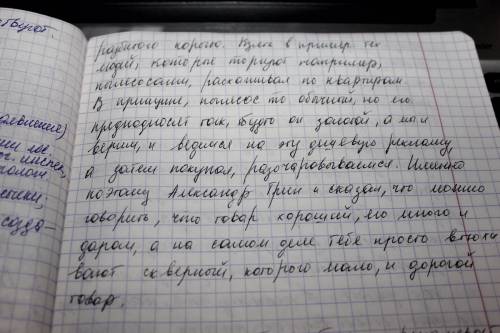 ствуют.
явление)
разбитого корыто. Взять в пример тех
людей, которые торгуют например,
пылесосами, расхаживая по квартирам
В принципе, пылесос то обычный, но его
преподносят так, будто он золотой, а мы и
верим, и ведемся на эту дешевую рекламу,
а затем покупая, разочаровываемся. Именно
поэтому Александр Грин и сказал, что можно
говорить, что товар хороший, его много и
даром, а на самом деле тебе просто втюхи
вают скверный, которого мало, и дорогой
товар.